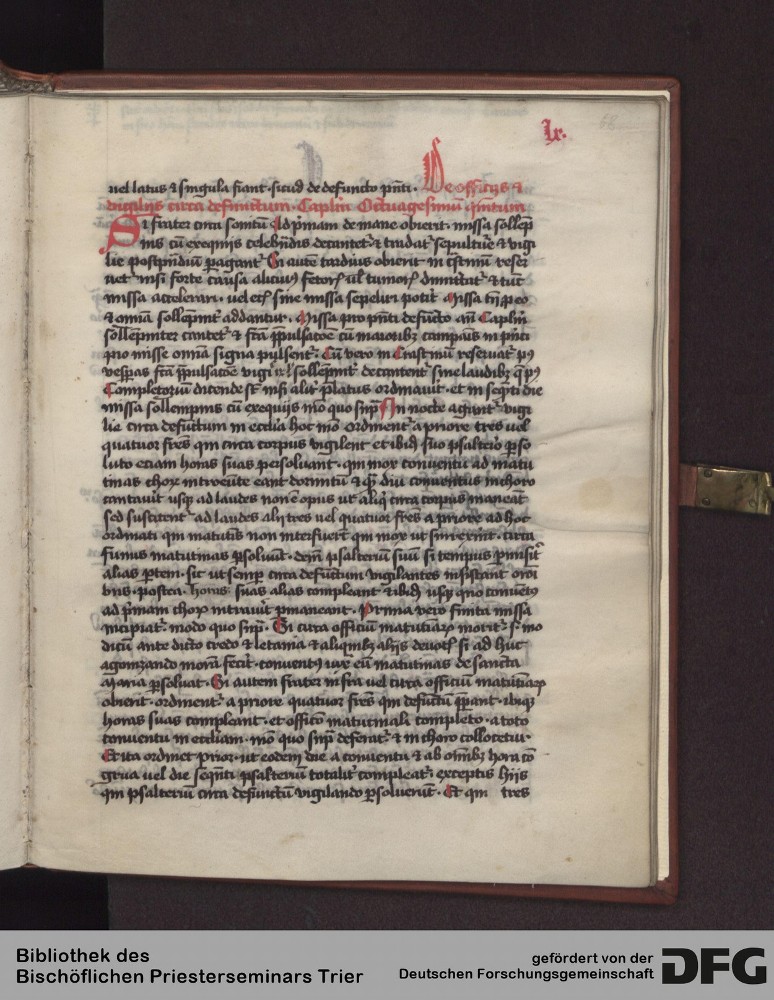 lx.
68
uel latus & singula fiant · sicud de defuncto p̄nti · De officijs &
vigilijs circa defunctum · Caplm̄ Octuagesimū quintum
Si frater circa somnū Ad p̄mam de mane obierit · missa sollēp
nis cū exequijs celebr̄dis decantet᷑ & tradat᷑ sepultur̄e & vigi
lie post prandiū pagant᷑ Si autē tardius obierit in cᷓstinū reser
uet᷑ nisi forte causa alicui⁹ fetoris ul̄ tumoris dimittat᷑ & tūc
missa accelerari · uel ecī sine missa sepeliri potit᷑ Missa tn̄ p eo
& om̄ia sollēpnit᷑ addantur · Missa pro p̄nti defūcto an̄ Caplm̄
sollēpniter cantet᷑ & fc̄a p̄pulsatōe cū maioribꝫ campanis in p̄nci
pio misse om̄ia signa pulsent᷑ · Cū vero in Crastinū reseruat᷑ p⁹
vesp̄as fc̄a p̄pulsatōe vigilie sollēpnit᷑ decantent᷑ sine laudibꝫ q̄ p⁹
Completoriū dicende sūt nisi alit᷑ p̄latus ordinauit · et in seq̄nti die
missa sollempnis cū exequijs mō quo sup̄ In nocte agunt᷑ vigi
lie circa defunctum in ecclīa hoc mō ordinent᷑ a priore tres uel
quatuor fr̄es qui circa corpus vigilent et ibidē suo psalterio p̄so
luto eciam horas suas persoluant · qui mox conuentu ad matu
tinas chorū introeunte eant dormitū & q̄ diu conuentus in choro
cantauit usqꝫ ad laudes non ē opus ut aliq̄ circa corpus maneāt
sed suscitent᷑ ad laudes alij tres uel quatuor fr̄es a priore ad hoc
ordinati qui matutīs non interfuerīt qui mox ut surrexerīt · circa
funus matutinas p̄soluūt · deīn psalteriū suū si tempus p̄miserit᷑
alias p̄tem · sic ut semp̄ circa defūctum vigilantes insistant orōi
bus · postea · horas suas alias compleant & ibidē usqꝫ quo conuēt⁹
ad p̄mam chorū intrauīt p̄maneant · Prima vero finita missa
incipiat᷑ · modo quo sup̄ · Si circa officiū matutinarū morit᷑
dicū ante dicto credo & letania & aliquibꝫ alijs deuotis si ad huc
agonizando morā fecīt · conuent⁹ iuxͣ eū matutinas de sancta
Maria p̄soluat · Si autem frater infra vel circa officiū matutinarū
obierit · ordinent᷑ a priore quatuor fr̄es qui defūctū p̄parant · ibiqꝫ
horas suas compleant · et officō matutinali completo · a toto
conuentu in eccliam · mō quo sup̄ deferat᷑ & in choro collocetur ·
Et ita ordinet prior · ut eodem die a conuentu & ab om̄ibꝫ hora cō
grua uel die seq̄nti psalteriū totalit᷑ compleat᷑ exceptis hijs
qui psalteriū circa defunctū vigilando p̄soluerūt · Et qui tres
Bibliothek des
Bischöflichen Priesterseminars Trier
gefördert von der
Deutschen Forschungsgemeinschaft
DFG